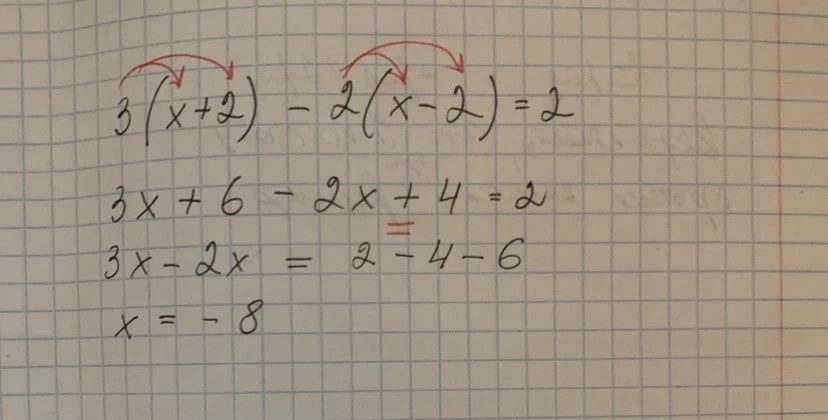 3(x+2) - 2(x-2) = 2
3x + 6 - 2x + 4 = 2
3x - 2x = 2 - 4 - 6
x = - 8